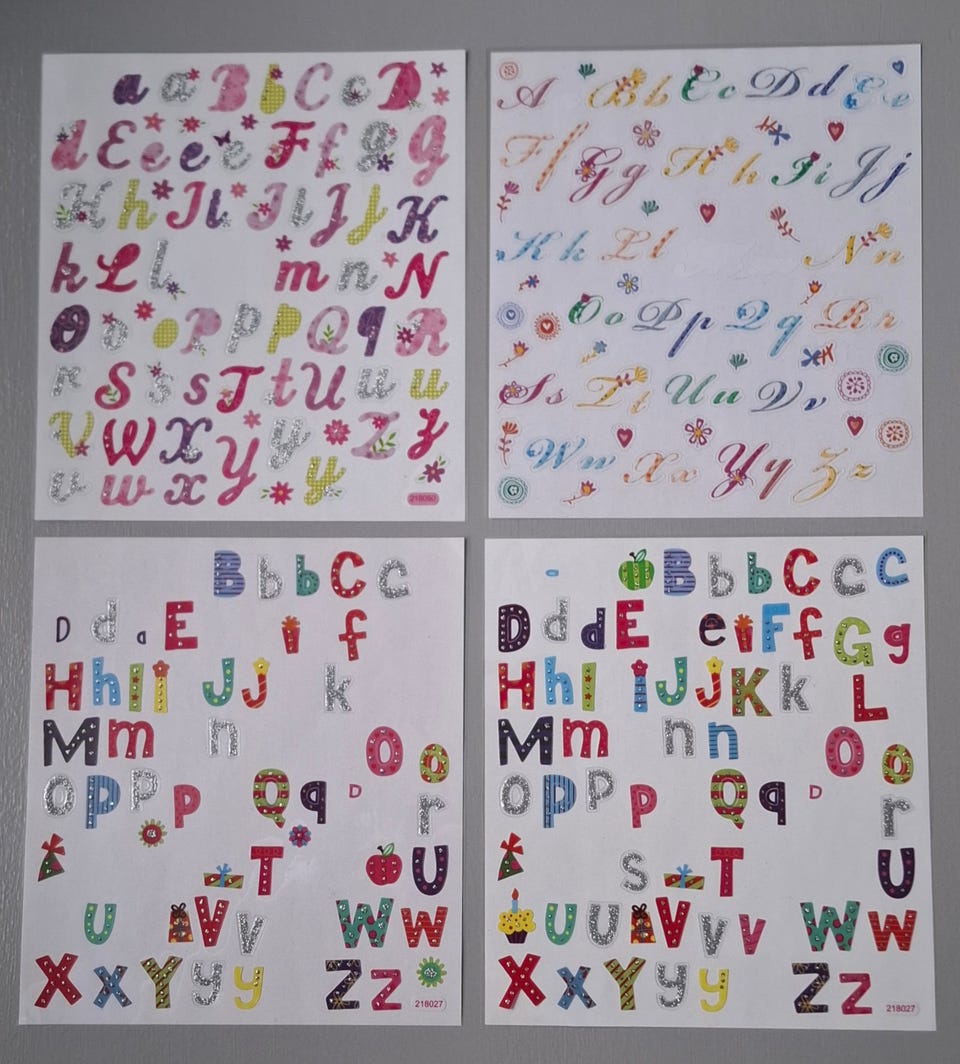 a a B b C c D
d E e e e F f g g
H h I t J i J j K
k L l m n N
O o o P p p Q q R
r S s s T t U u u
V W X Y y Z z
v w x y
218060
A B b C c D d E e
F f G g H h I i J j
K k L l N n
O o P p Q q R r
S s T t U u V v
W w X x Y y Z z
B b b C c
D d a E i f
H h I i J j k
M m n O o
O P P p Q q D r
T U
U V V W w
X x Y y y Z z
218027
B b b C c C
D d d E e i F f G g
H h I i J j K k L
M m n n O o
O P P p Q q D r
s T U
U U V V v W w
X x Y y y Z z
218027